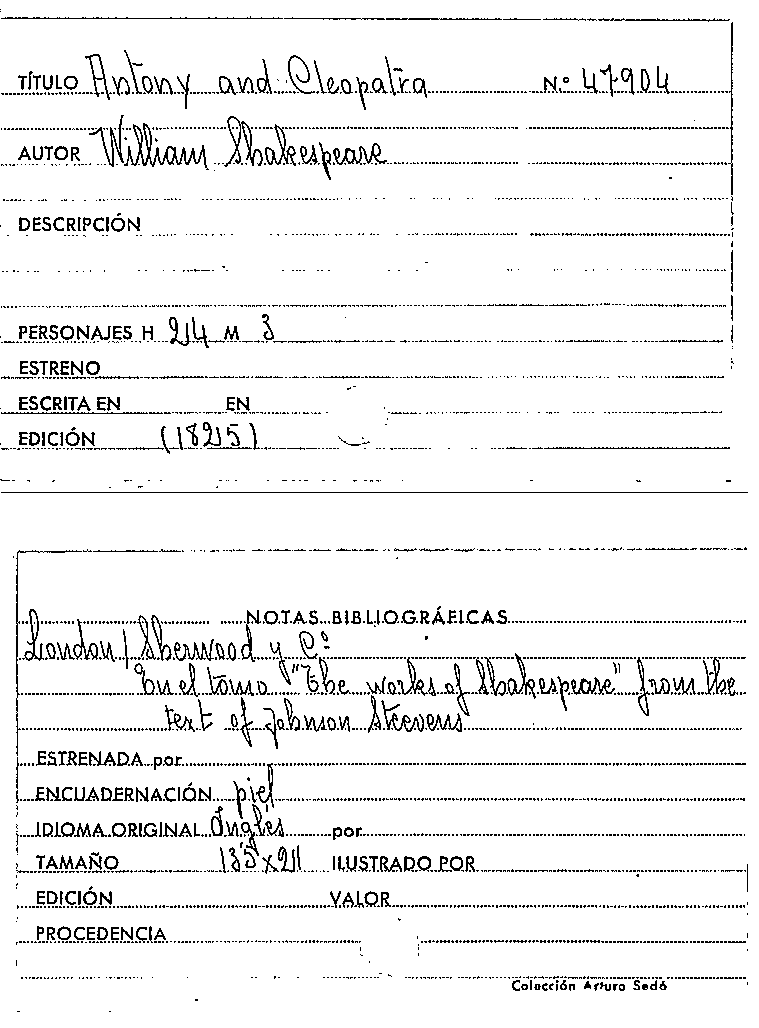 TÍTULO Antony and Cleopatra N.º 47904
AUTOR William Shakespeare
DESCRIPCIÓN
PERSONAJES H 24 M 3
ESTRENO
ESCRITA EN EN
EDICIÓN (1825)
NOTAS BIBLIOGRÁFICAS
London / Sherwood y Cº
En el tomo "The works of Shakespeare" from the
text of Johnson Steevens
ESTRENADA por
ENCUADERNACIÓN piel
IDIOMA ORIGINAL Inglés por
TAMAÑO 13'5 x 21 ILUSTRADO POR
EDICIÓN VALOR
PROCEDENCIA
Colección Arturo Sedó